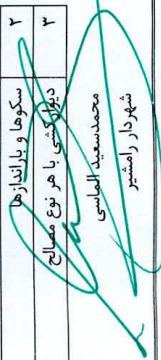 ۲ سکوها و باراندازها
۳ دیوارکشی با هر نوع مصالح
محمدسعید الماسی
شهردار رامشیر